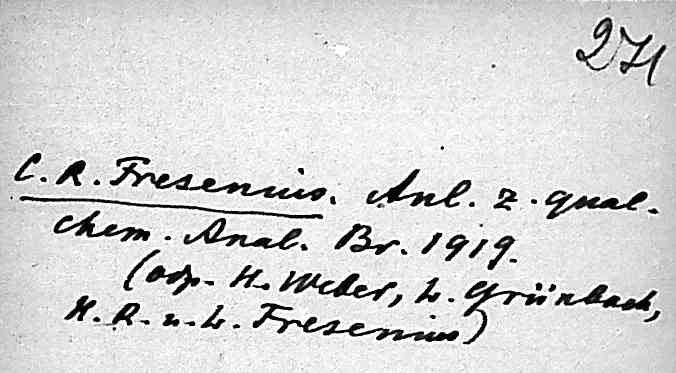 271
C. R. Fresenius. Anl. z. qual.
chem. Anal. Br. 1919.
(odp. H. Weber, L. Grünbach,
H. R. u. L. Fresenius)